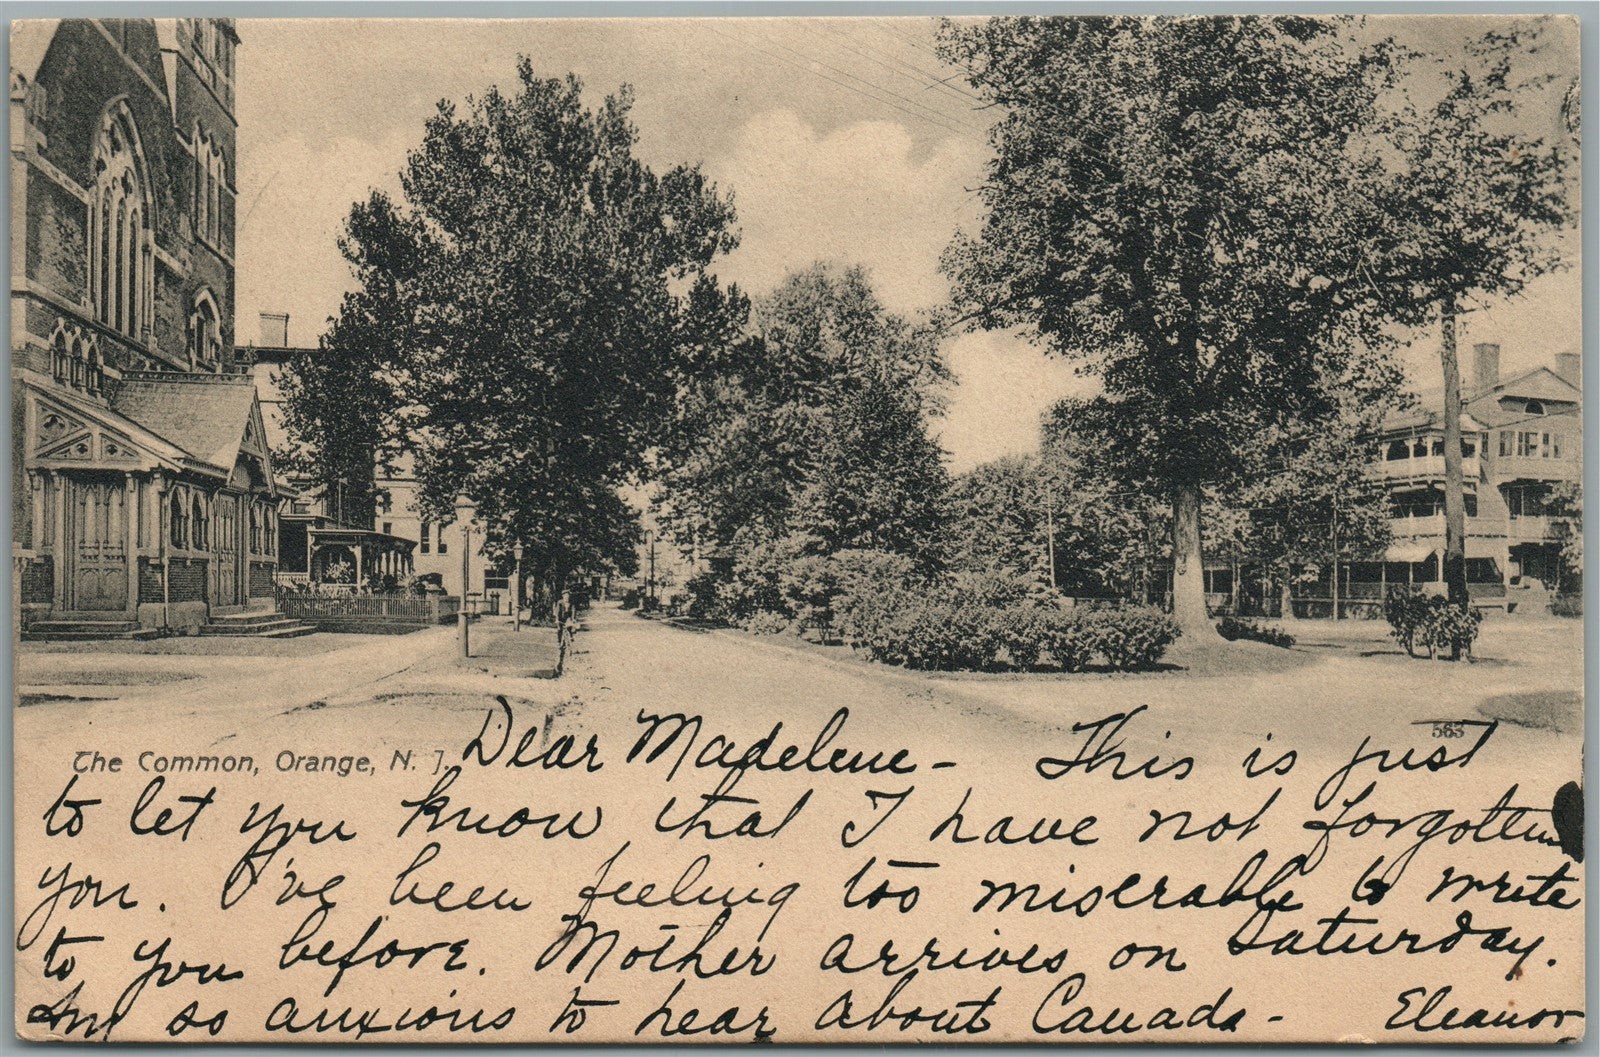 565
The Common, Orange, N. J.
Dear Madeleine - This is just
to let you know that I have not forgotten
you. I've been feeling too miserable to write
to you before. Mother arrives on Saturday.
Am so anxious to hear about Canada - Eleanor